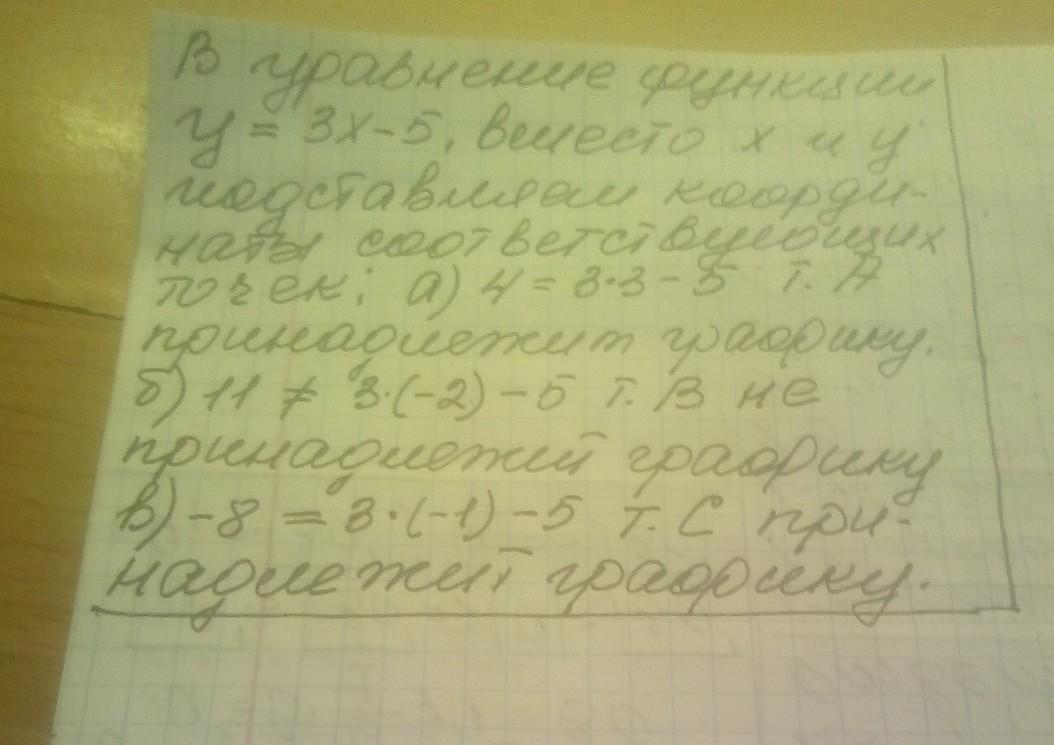 В уравнение функции
y = 3x - 5, вместо x и y
подставляем коорди-
наты соответствующих
точек: а) 4 = 3·3 - 5 т. А
принадлежит графику.
б) 11 ≠ 3·(-2) - 5 т. В не
принадлежит графику
в) -8 = 3·(-1) - 5 т. С при-
надлежит графику.